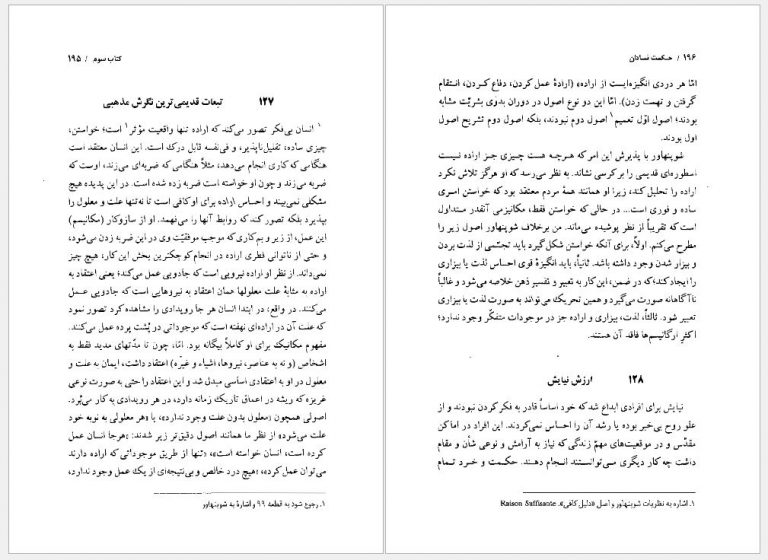 کتاب سوم / ۱۹۵
۱۲۷ تبعات قدیمی‌ترین نگرش مذهبی
انسان بی‌فکر تصور می‌کند که اراده تنها واقعیت مؤثر۱ است؛ خواستن،
چیزی ساده، تقلیل‌ناپذیر، و فی‌نفسه قابل درک است. این انسان معتقد است
هنگامی که کاری انجام می‌دهد، مثلاً هنگامی که ضربه‌ای می‌زند، اوست که
ضربه می‌زند و چون او خواسته است ضربه زده شده است. در این پدیده هیچ
مشکلی نمی‌بیند و احساس اراده برای او کافی است تا نه‌تنها علت و معلول را
بپذیرد بلکه تصور کند که روابط آنها را می‌فهمد. او از سازوکار (مکانیسم)
این عمل، از زیر و بم کاری که موجب موفقیّت وی در این ضربه زدن می‌شود،
و حتی از ناتوانی فطری اراده در انجام کوچکترین بخش این کار، هیچ چیز
نمی‌داند. از نظر او اراده نیرویی است که جادویی عمل می‌کند؛ یعنی اعتقاد به
اراده به مثابهٔ علت معلولها همان اعتقاد به نیروهایی است که جادویی عمل
می‌کنند. در واقع، در ابتدا انسان هر جا رویدادی را مشاهده کرد تصور نمود
که علت آن در اراده‌ای نهفته است که موجوداتی در پُشت پرده عمل می‌کنند.
مفهوم مکانیک برای او کاملاً بیگانه بود. امّا، چون تا مدّتهای مدید فقط به
اشخاص (و نه به عناصر، نیروها، اشیاء و غیره) اعتقاد داشت، ایمان به علت و
معلول در او به اعتقادی اساسی مبدل شد و این اعتقاد را حتی به صورت نوعی
غریزه که ریشه در اعماق تاریک زمانه دارد، در هر رویدادی به کار می‌بُرد.
اصولی همچون «معلول بدون علت وجود ندارد»، یا «هر معلولی به نوبه خود
علت می‌شود» از نظر ما همانند اصول دقیق‌تر زیر شدند: «هرجا انسان عمل
کرده است، انسان خواسته است»، «تنها از طریق موجوداتی که اراده دارند
می‌توان عمل کرد»، «هیچ درد خالص و بی‌نتیجه‌ای از یک عمل وجود ندارد،
۱. رجوع شود به قطعه ۹۹ و اشاره به شوپنهاور
۱۹۶ / حکمت شادان
امّا هر دردی انگیزه‌ایست از اراده» (ارادهٔ عمل کردن، دفاع کردن، انتقام
گرفتن و تهمت زدن). امّا این دو نوع اصول در دوران بدوی بشریّت مشابه
بودند؛ اصول اوّل تعمیم۱ اصول دوم نبودند، بلکه اصول دوم تشریح اصول
اول بودند.
شوپنهاور با پذیرش این امر که هرچه هست چیزی جز اراده نیست
اسطوره‌ای قدیمی را بر کرسی نشاند. به نظر می‌رسد که او هرگز تلاش نکرد
اراده را تحلیل کند، زیرا او همانند همهٔ مردم معتقد بود که خواستن امری
ساده و فوری است... در حالی که خواستن فقط، مکانیزمی آنقدر متداول
است که تقریباً از نظر پوشیده می‌ماند. من برخلاف شوپنهاور اصول زیر را
مطرح می‌کنم. اولاً، برای آنکه خواستن شکل گیرد باید تجسّمی از لذت بردن
و بیزار شدن وجود داشته باشد. ثانیاً، باید انگیزهٔ قوی احساس لذت یا بیزاری
را ایجاد کند؛ که در ضمن، این کار به تعبیر و تفسیر ذهن خلاصه می‌شود و غالباً
ناآگاهانه صورت می‌گیرد و همین تحریک می‌تواند به صورت لذت یا بیزاری
تعبیر شود. ثالثاً، لذت، بیزاری و اراده جز در موجودات متفکّر وجود ندارد؛
اکثر ارگانیسم‌ها فاقد آن هستند.
۱۲۸ ارزش نیایش
نیایش برای افرادی ابداع شد که خود اساساً قادر به فکر کردن نبودند و از
علو روح بی‌خبر بوده یا رشد آن را احساس نمی‌کردند. این افراد در اماکن
مقدّس و در موقعیت‌های مهمّ زندگی که نیاز به آرامش و نوعی شأن و مقام
داشت چه کار دیگری می‌توانستند انجام دهند. حکمت و خرد تمام
۱. اشاره به نظریات شوپنهاور و اصل «دلیل کافی»، Raison Suffisante